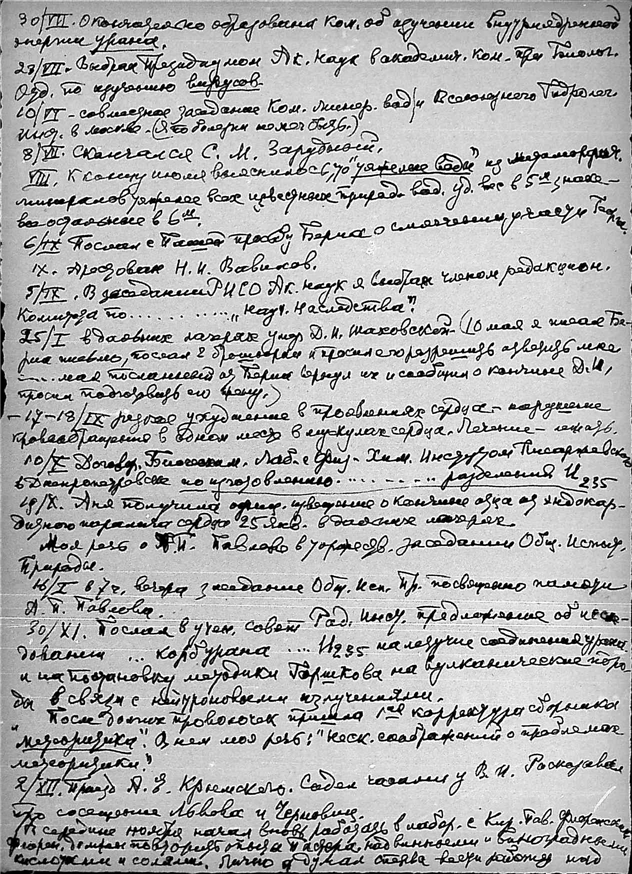 30/VII. Окончательно образована Ком. об изучении внутриядерной
энергии урана.
28/VII. Выбран президиумом Ак. Наук в академич. Ком. при Биолог.
Отд. по изучению вирусов.
10/VI - совместное заседание Ком. минер. вод и Всесоюзного Гидролог.
Инст. в Москве. (Я по болезни не мог быть.)
8/VII. Скончался С. М. Зарудный.
VIII. К концу июля выяснилось, что "тяжелые воды" из метаморфич.
минералов тяжелее всех известных природ. вод. Уд. вес в 5м знаке -
все остальные в 6м.
6/IX Послал с Пашей просьбу Берия о смягчении участи
IX. Арестован Н. И. Вавилов.
5/IX. В заседании РИСО Ак. Наук я выбран членом редакцион.
Комитета по .......... "Науч. Наследства".
25/I в дальних лагерях умер Д. И. Шаховской - (10 мая я писал Бе-
рия письмо, послал 2 брошюры и просил его разрешить известить меня
..... мая посланный от Берия вернул их и сообщил о кончине Д. И.,
просил подготовить его жену.)
- 17-18/IX резкое ухудшение в проявлениях сердца - нарушение
кровообращения в одном месте в мускулах сердца. Лечение - лежать.
10/X Договор. Биогеохим. Лаб. с Физ.-Хим. Институтом Писаржевского
в Днепропетровске по изготовлению ......... разделения U 235
19/X. Аня получила офиц. извещение о кончине отца от эндокар-
дного паралича сердца 25 янв. в дальних лагерях
Моя речь о А. П. Павлове в торжеств. заседании Общ. Испыт.
Природы.
18/X в 7 ч. вечера заседание Общ. Исп. Пр. посвящено памяти
А. П. Павлова.
30/XI. Послал в учен. совет Рад. Инст. предложение об иссле-
довании .. карбурана .... U 235 на летучие соединения урана
и на постановку методики Горшкова на вулканические поро-
ды в связи с нейтроновыми излучениями.
После долгих проволочек пришла 1ая корректура сборника
"Метеоритика". В нем моя речь: "Неск. соображений о проблемах
метеоритики".
2/XII. Приезд А. Е. Крымского. Сидел часами у В. И. Рассказывал
про посещение Львова и Черновиц.
В середине ноября начал вновь работать в лабор. с Кир. Пав. Флоренским
повторять опыта Пастера над винными и виноградными
кислотами и солями. Лично я думал сперва вести работу над